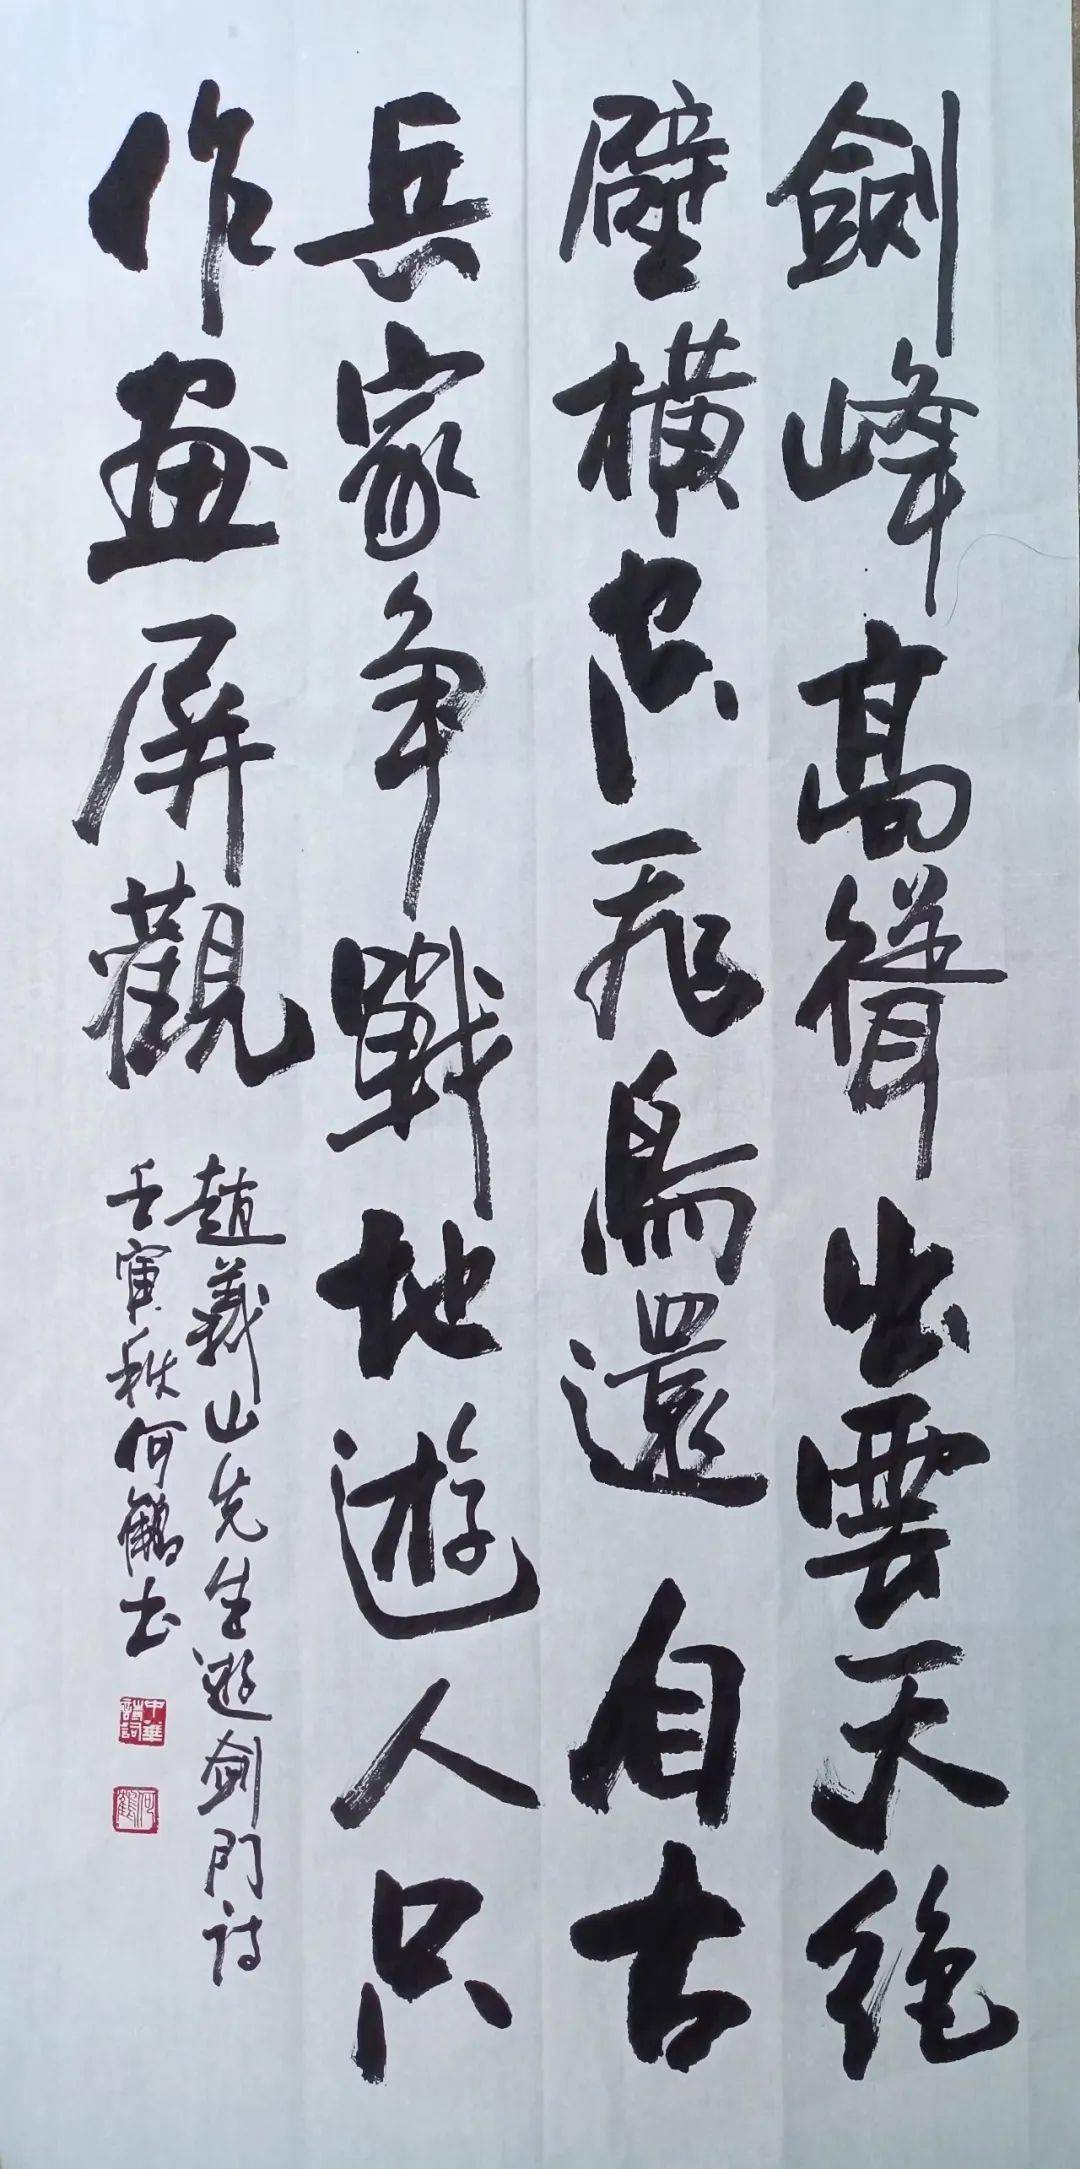 劍峰高聳出雲天絕
壁橫空飛鳥還自古
兵家争戰地遊人只
作畫屏觀
趙義山先生遊劍門詩
壬寅秋何鶴书
中華詩詞
何鶴